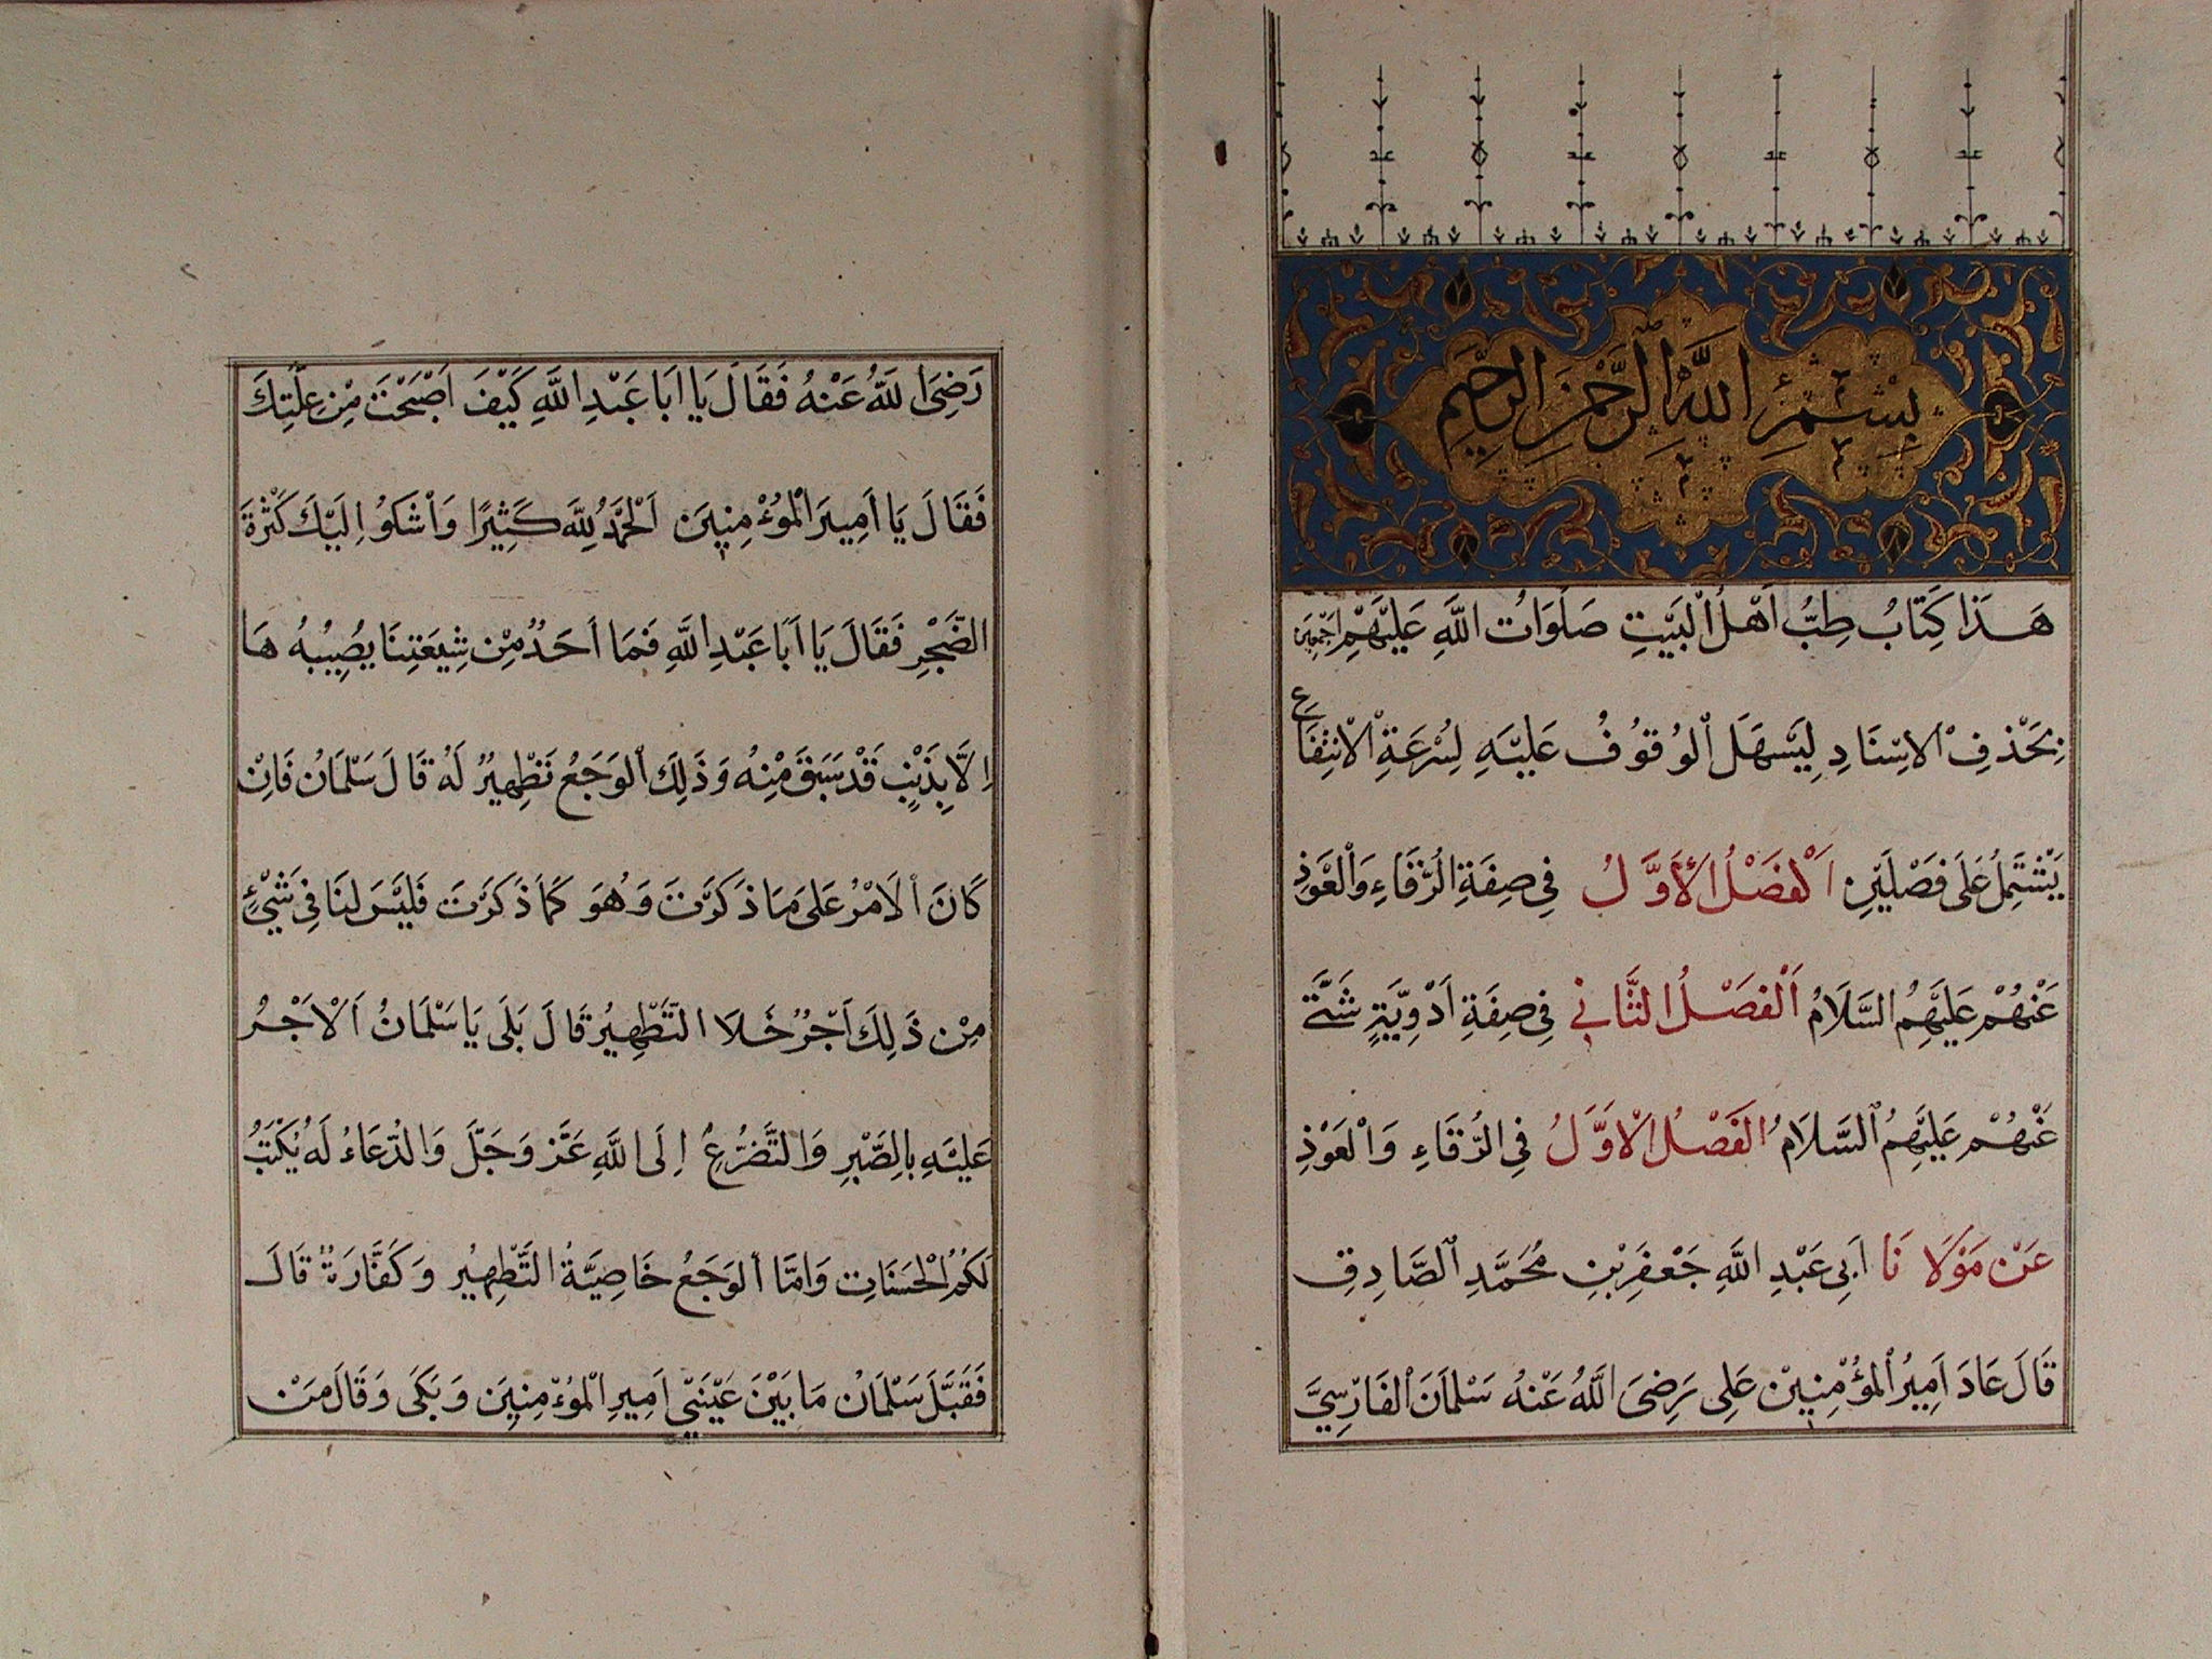 بِسْمِ اللهِ الرَّحْمٰنِ الرَّحِيمِ
هَذَا كِتَابُ طِبُّ اَهْلُ الْبَيْتِ صَلَوَاتُ اللَّهِ عَلَيْهِمْ اَجْمَعِينَ
بِحَذْفِ الاسْنَادِ لِيَسْهَلَ الْوُقُوفُ عَلَيْهِ لِسُرْعَةِ الْاِنْتِفَاعِ
يَشْتَمِلُ عَلَى فَصْلَيْنِ اَلْفَصْلُ الْأَوَّلُ فِي صِفَةِ الرُّقَاءِ وَالْعَوْذِ
عَنْهُمْ عَلَيْهِمُ السَّلَامُ اَلْفَصْلُ الثَّانِي فِي صِفَةِ اَدْوِيَةٍ شَتَّى
عَنْهُمْ عَلَيْهِمُ السَّلَامُ الفَصْلُ الْاَوَّلُ فِي الرُّقَاءِ وَالْعَوْذِ
عَنْ مَوْلَانَا اَبِي عَبْدِ اللَّهِ جَعْفَرِ بْنِ مُحَمَّدِ الصَّادِقِ
قَالَ عَادَ اَمِيرُ الْمُؤْمِنِيْنَ عَلِى رَضِىَ اللَّهُ عَنْهُ سَلْمَانَ الْفَارْسِيَّ
رَضِىَ اللَّهُ عَنْهُ فَقَالَ يَا اَبَا عَبْدِ اللَّهِ كَيْفَ اَصْبَحْتَ مِنْ عِلَّتِكَ
فَقَالَ يَا اَمِيرَ الْمُؤْمِنِينَ اَلْحَمْدُ لِلَّهِ كَثِيرًا وَاَشْكُو اِلَيْكَ كَثْرَةَ
الضَّجْرِ فَقَالَ يَا اَبَا عَبْدِ اللَّهِ فَمَا اَحَدٌ مِنْ شِيعَتِنَا يُصِيبُهُ هَا
اِلَّا بِذَنْبٍ قَدْ سَبَقَ مِنْهُ وَذَلِكَ الْوَجَعُ تَطْهِيرٌ لَهُ قَالَ سَلْمَانُ فَاِنْ
كَانَ الْاَمْرُ عَلَى مَا ذَكَرْتَ وَهُوَ كَمَا ذَكَرْتَ فَلَيْسَ لَنَا فِى شَيْءٍ
مِنْ ذَلِكَ اَجْرٌ خَلَا التَّطْهِيرُ قَالَ بَلَى يَا سَلْمَانُ اَلْاَجْرُ
عَلَيْهِ بِالصَّبْرِ وَالتَّضَرُّعِ اِلَى اللَّهِ عَزَّ وَجَلَّ وَالدُّعَاءُ لَهُ يُكْتَبُ
لَكُمُ الْحَسَنَاتِ وَاَمَّا الْوَجَعُ خَاصِيَّةُ التَّطْهِيرِ وَكَفَّارَةٌ قَالَ
فَقَبَّلَ سَلْمَانُ مَا بَيْنَ عَيْنَيْ اَمِيرِ الْمُؤْمِنِينَ وَبَكَى وَقَالَ مَنْ